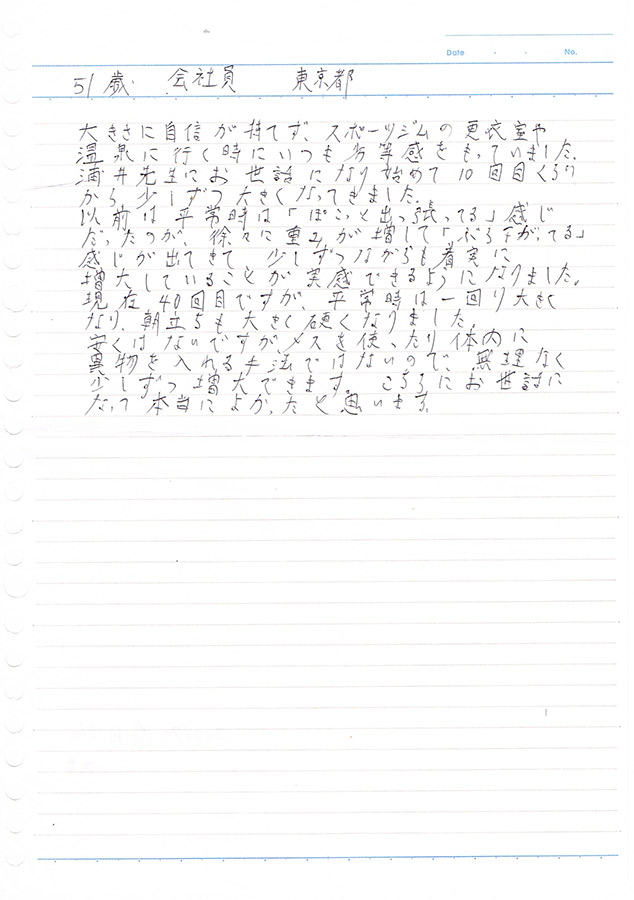 Date ・ ・ No.
51歳 会社員 東京都
大きさに自信が持てず、スポーツジムの更衣室や
温泉に行く時にいつも劣等感をもっていました。
酒井先生にお世話になり始めて10回目くらい
から、少しずつ大きくなってきました。
以前は平常時は「ぽこっと出っ張ってる」感じ
だったのが、徐々に重みが増して「ぶら下がってる」
感じが出てきて 少しずつながらも着実に
増大していることが実感できるようになりました。
現在40回目ですが、平常時は一回り大きく
なり、朝立ちも大きく硬くなりました。
安くはないですがメスを使ったり体内に
異物を入れる手法ではないので、無理なく
少しずつ増大できます。こちらにお世話に
なって本当によかったと思います。